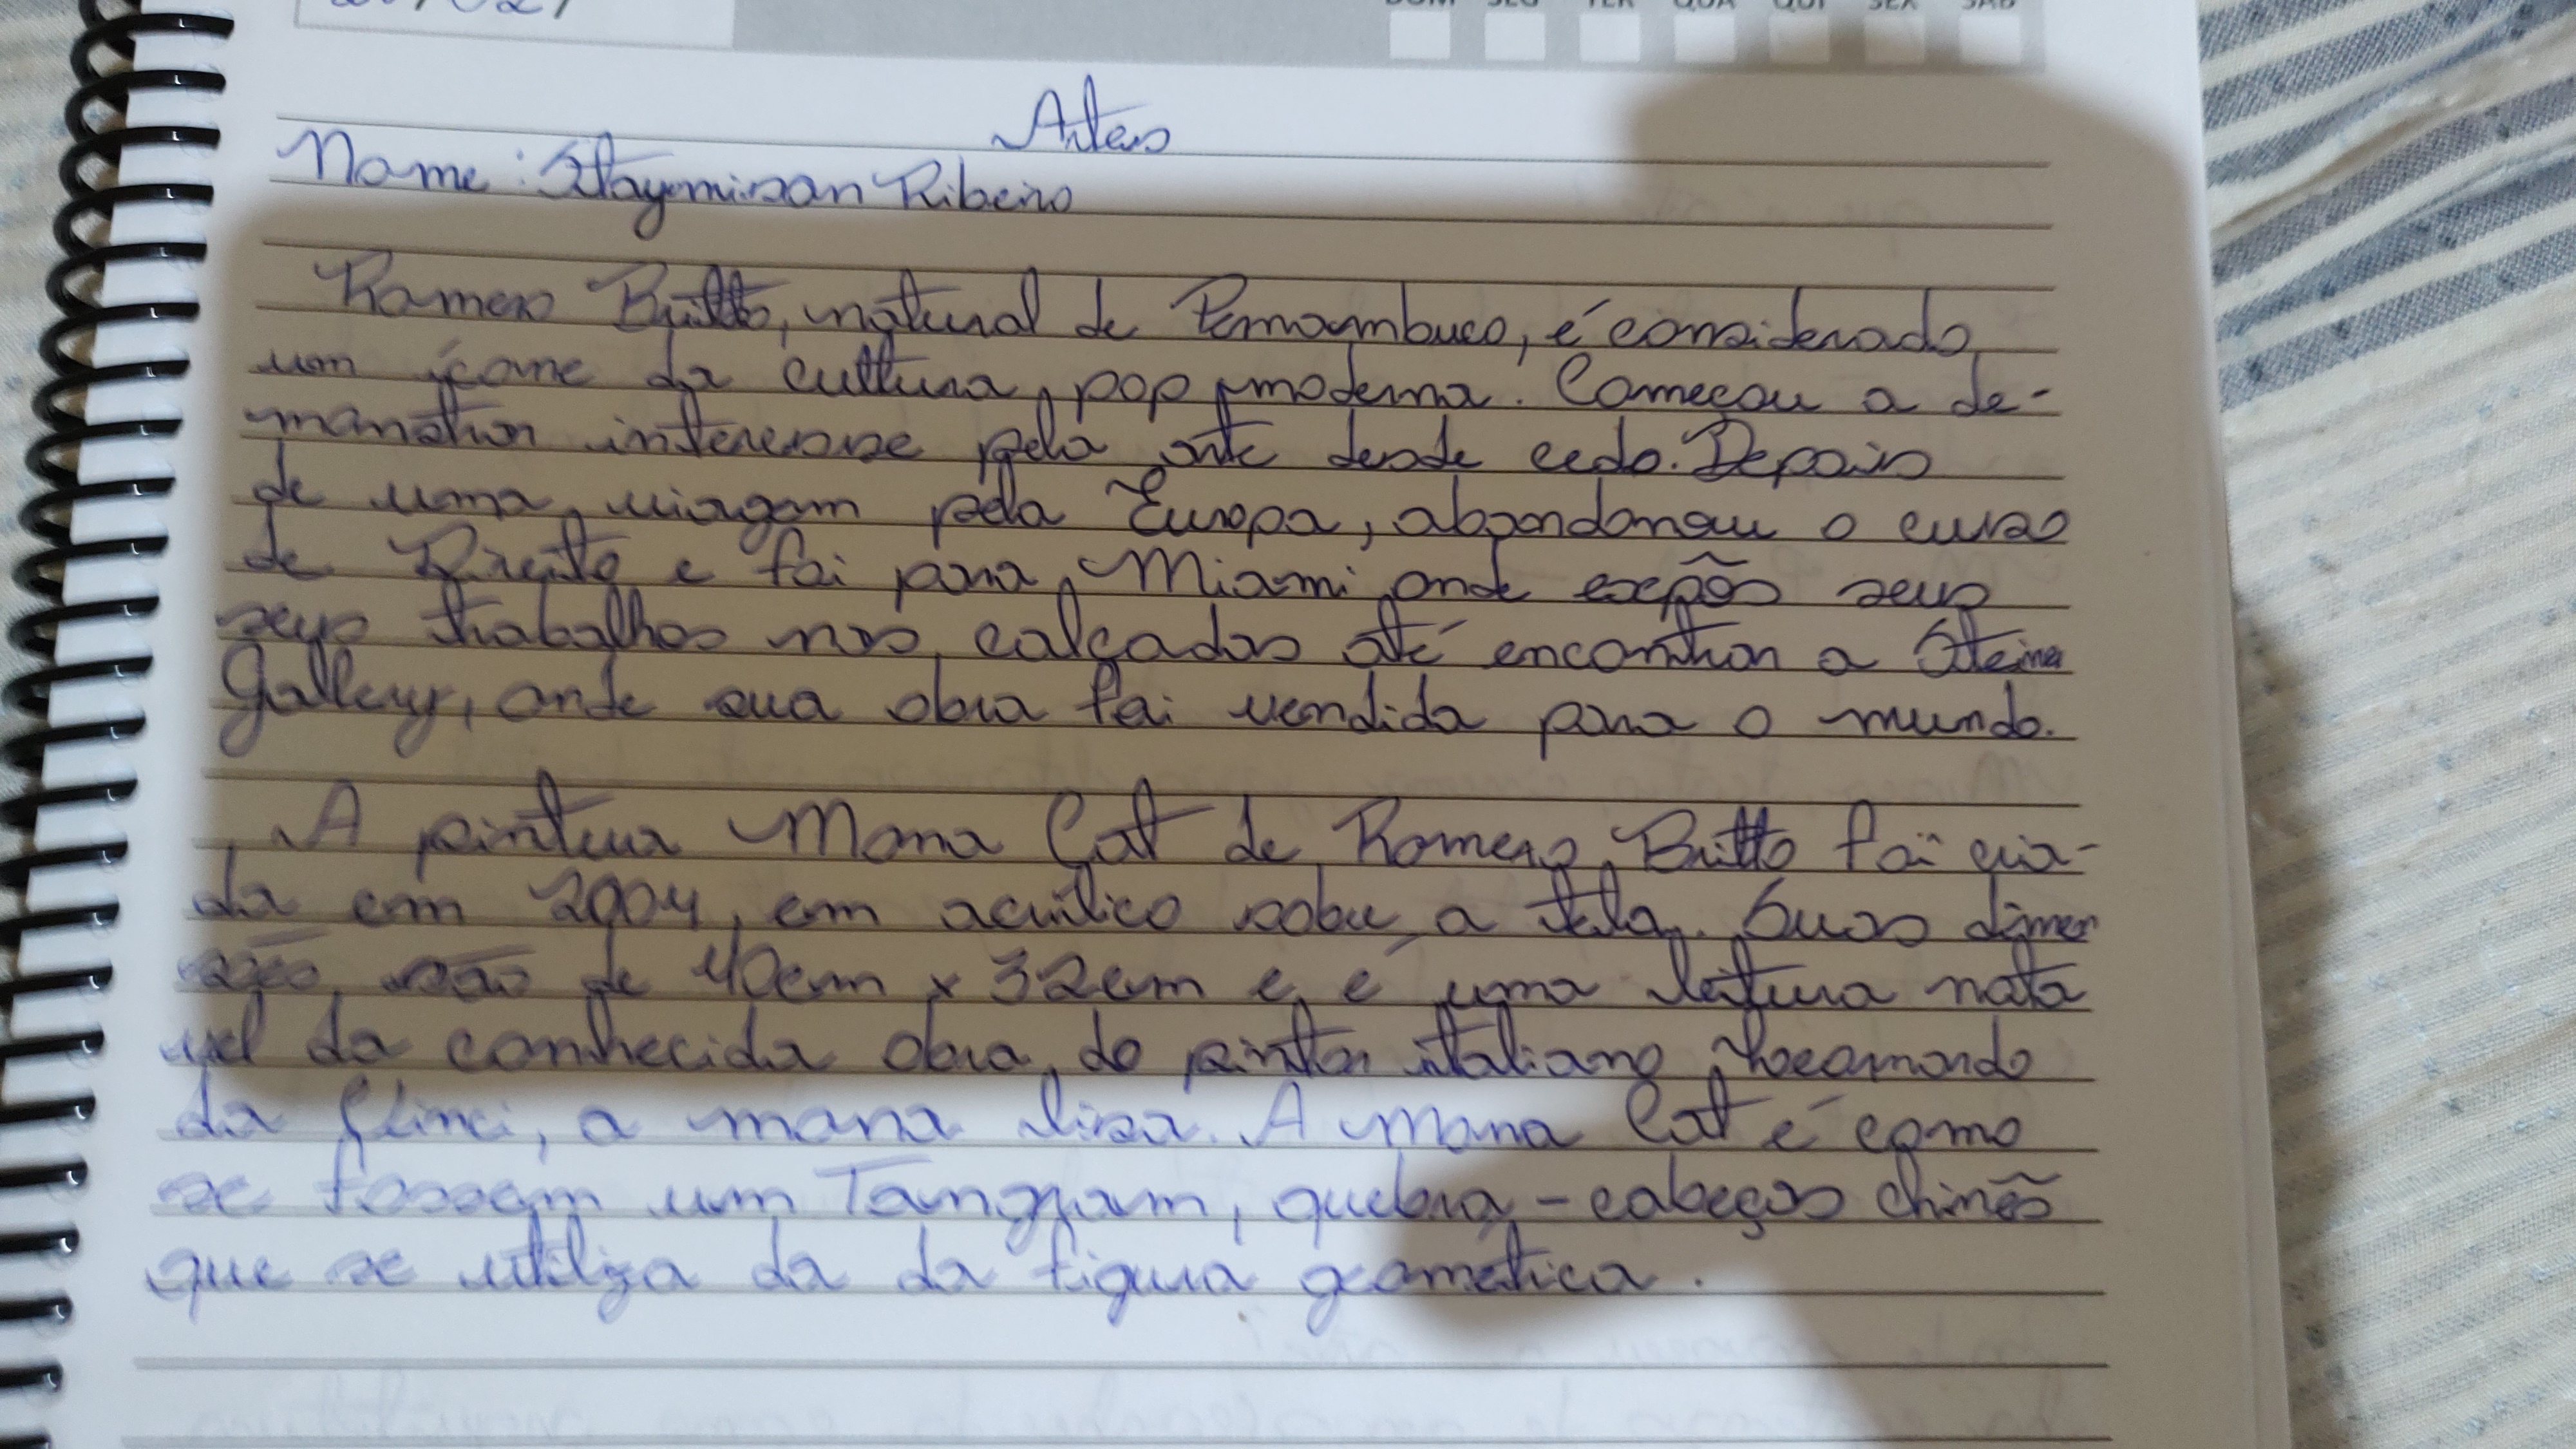 DOM SEG TER QUA QUI SEX SAB
Artes
Nome: Staymisson Ribeiro
Romero Britto, natural de Pernambuco, é considerado
um ícone da cultura pop moderna. Começou a de-
monstrar interesse pela arte desde cedo. Depois
de uma viagem pela Europa, abandonou o curso
de Direito e foi para Miami onde expôs seus
seus trabalhos nas calçadas até encontrar a Steiner
Gallery, onde sua obra foi vendida para o mundo.
A pintura Mona Cat de Romero Britto foi cria-
da em 2004, em acrílico sobre a tela. Suas dimen
sões são de 40cm x 32cm e é uma leitura notá
vel da conhecida obra do pintor italiano Leonardo
da Vinci, a mona lisa. A mona Cat é como
se fossem um Tangram, quebra-cabeças chinês
que se utiliza da da figura geométrica.